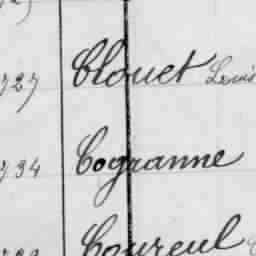 727 Clouet Louis
734 Cogranne
Coureul